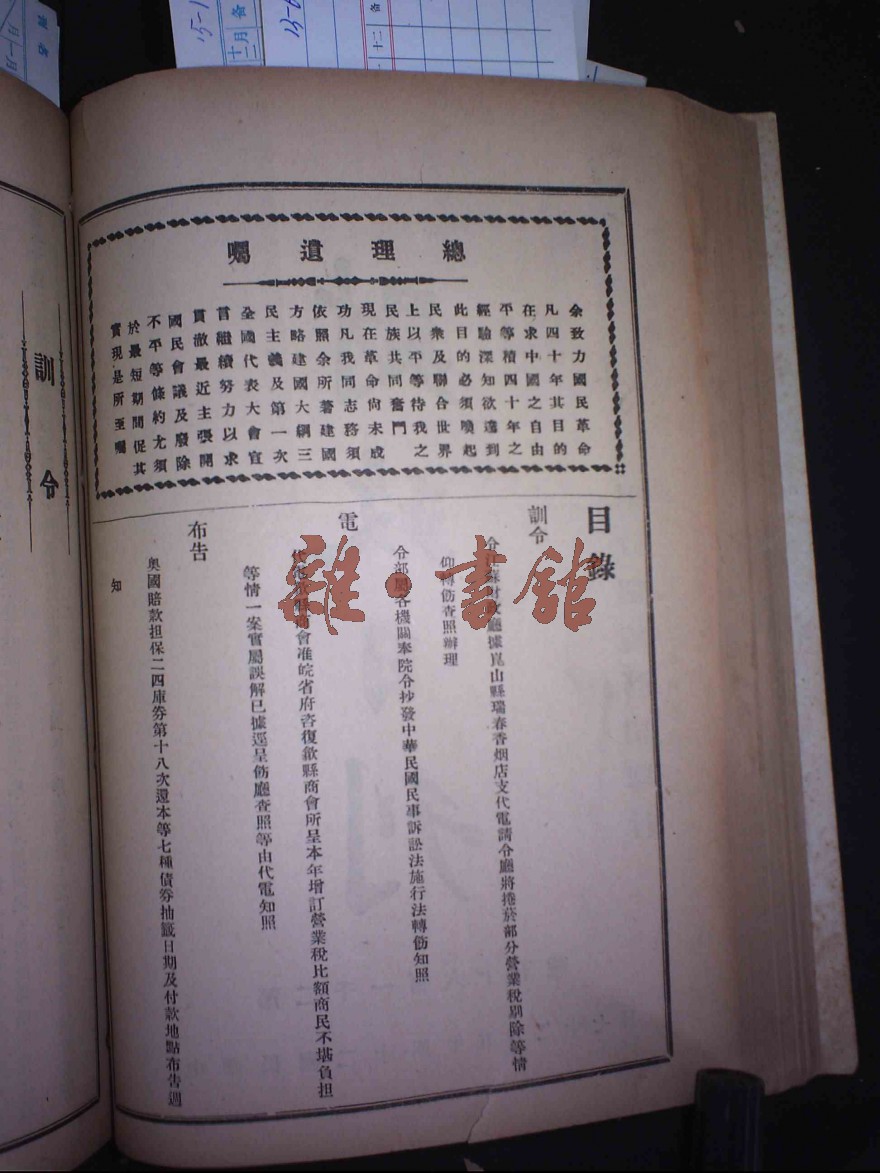 總理遺囑
余致力國民革命
凡四十年其目的
在求中國之自由
平等積四十年之
經驗深知欲達到
此目的必須喚起
民衆及聯合世界
上以平等待我之
民族共同奮鬥
現在革命尚未成
功凡我同志務須
依照余所著建國
方略建國大綱三
民主義及第一次
全國代表大會宣
言繼續努力以求
貫澈最近主張開
國民會議及廢除
不平等條約尤須
於最短期間促其
實現是所至囑
目錄
訓令
令江蘇財政廳據崑山縣瑞春香烟店支代電請令廳將捲菸部分營業稅剔除等情
仰轉飭查照辦理
令部屬各機關奉院令抄發中華民國民事訴訟法施行法轉飭知照
電
代電歙縣商會准皖省府咨復歙縣商會所呈本年增訂營業稅比額商民不堪負担
等情一案實屬誤解已據逕呈飭廳查照等由代電知照
布告
奥國賠款担保二四庫券第十八次還本等七種債券抽籤日期及付款地點布告週
知
訓令
雜·書館